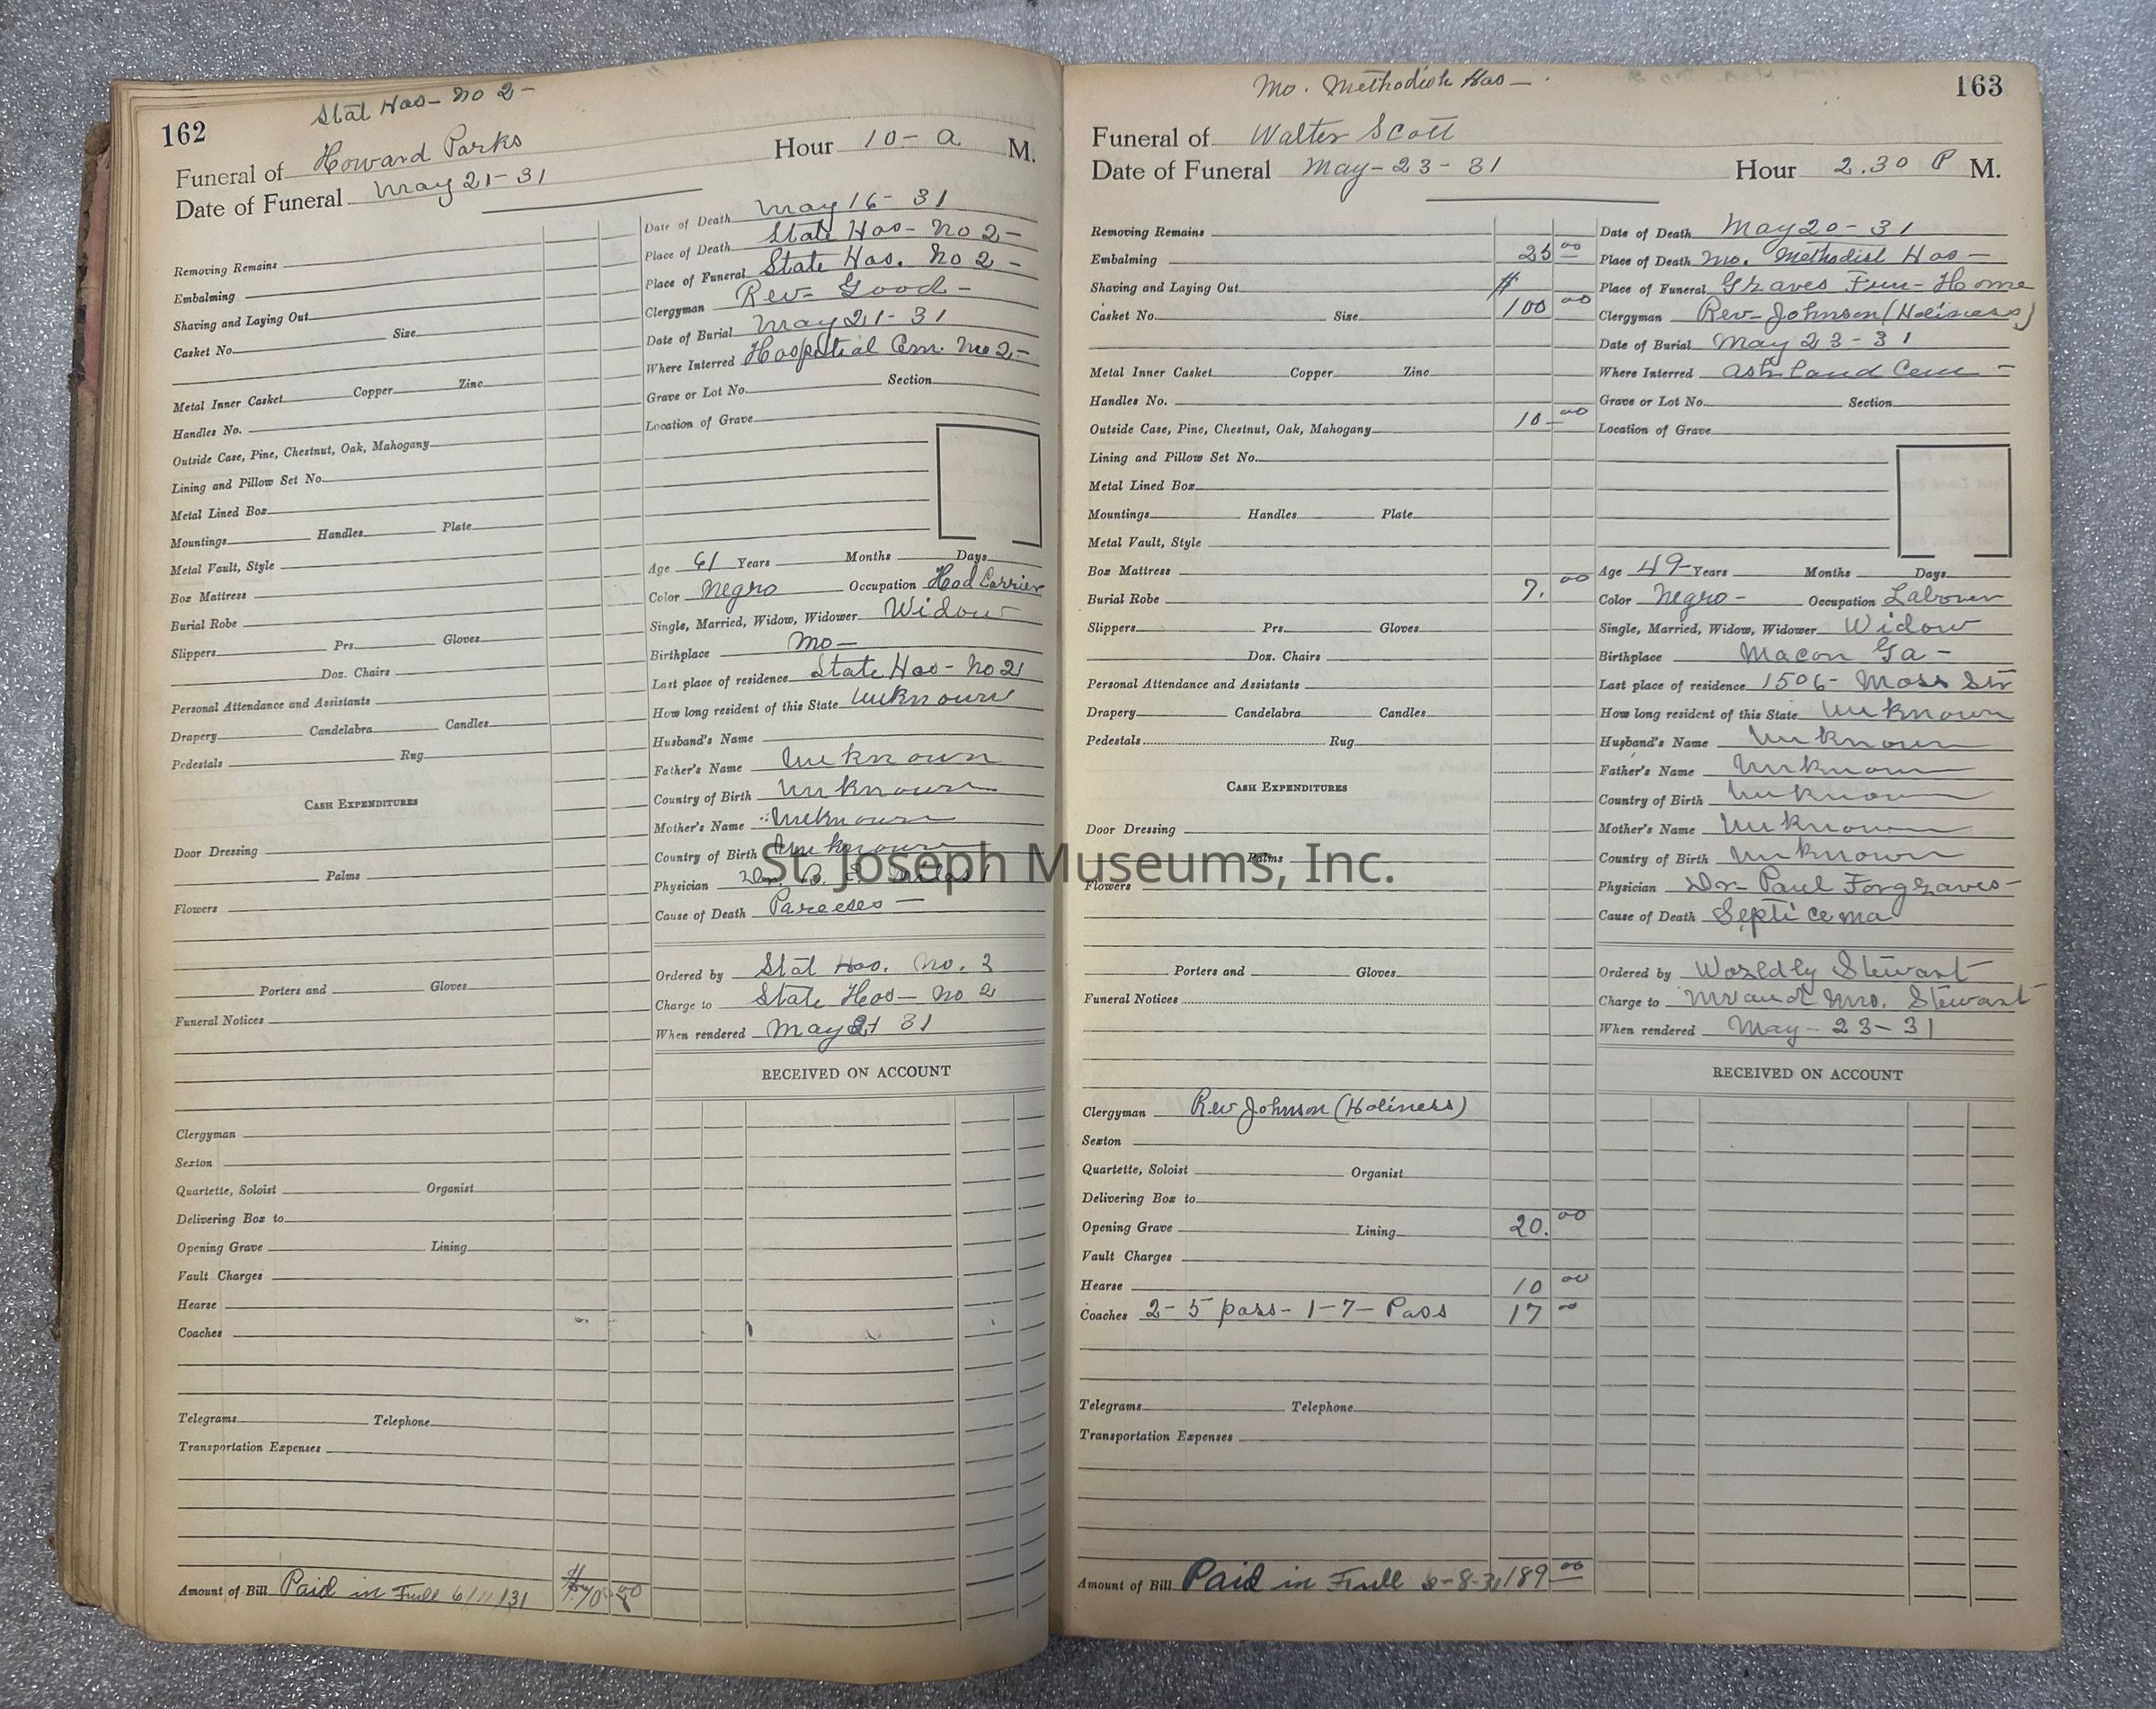 162
Stat Hos- No 2-
Funeral of Howard Parks
Date of Funeral May 21-31 Hour 10- a M.
Date of Death May 16- 31
Place of Death State Hos- No 2-
Place of Funeral State Hos. No 2-
Clergyman Rev- Good-
Date of Burial May 21- 31
Where Interred Hospatial Cem. No 2-
Grave or Lot No. Section
Location of Grave
Removing Remains
Embalming
Shaving and Laying Out
Casket No. Size
Metal Inner Casket Copper Zinc
Handles No.
Outside Case, Pine, Chestnut, Oak, Mahogany
Lining and Pillow Set No.
Metal Lined Box
Mountings Handles Plate
Metal Vault, Style
Box Mattress
Burial Robe
Slippers Prs. Gloves
Doz. Chairs
Personal Attendance and Assistants
Drapery Candelabra Candles
Pedestals Rug
CASH EXPENDITURES
Door Dressing
Palms
Flowers
Porters and Gloves
Funeral Notices
Clergyman
Sexton
Quartette, Soloist Organist
Delivering Box to
Opening Grave Lining
Vault Charges
Hearse
Coaches
Telegrams Telephone
Transportation Expenses
Amount of Bill Paid in Full 6/11/31
Age 61 Years Months Days
Color Negro Occupation Hod Carrier
Single, Married, Widow, Widower Widow
Birthplace Mo-
Last place of residence State Hos- No 2
How long resident of this State Unknown
Husband's Name
Father's Name Unknown
Country of Birth Unknown
Mother's Name Unknown
Country of Birth Unknown
Physician Dr.
Cause of Death Pareses-
Ordered by Stat Hos. No. 2
Charge to State Hos- No 2
When rendered May 21 31
RECEIVED ON ACCOUNT
Mo. Methodist Hos-
163
Funeral of Walter Scott
Date of Funeral May-23-31 Hour 2.30 P M.
Removing Remains
Embalming 25 00
Shaving and Laying Out $
Casket No. Size 100 00
Metal Inner Casket Copper Zinc
Handles No.
Outside Case, Pine, Chestnut, Oak, Mahogany 10 00
Lining and Pillow Set No.
Metal Lined Box
Mountings Handles Plate
Metal Vault, Style
Box Mattress
Burial Robe 7. 00
Slippers Prs. Gloves
Doz. Chairs
Personal Attendance and Assistants
Drapery Candelabra Candles
Pedestals Rug
CASH EXPENDITURES
Door Dressing
Palms
Flowers
Porters and Gloves
Funeral Notices
Clergyman Rev Johnson (Holiness)
Sexton
Quartette, Soloist Organist
Delivering Box to
Opening Grave Lining 20. 00
Vault Charges
Hearse 10 00
Coaches 2- 5 pass- 1-7- Pass 17 00
Telegrams Telephone
Transportation Expenses
Amount of Bill Paid in Full 6-8-31 189 00
Date of Death May 20- 31
Place of Death Mo. Methodist Hos-
Place of Funeral Graves Fun- Home
Clergyman Rev- Johnson (Holiness)
Date of Burial May 23-31
Where Interred Ashland Cem-
Grave or Lot No. Section
Location of Grave
Age 49 Years Months Days
Color Negro- Occupation Laborer
Single, Married, Widow, Widower Widow
Birthplace Macon Ga-
Last place of residence 1506- Moss Str
How long resident of this State Unknown
Husband's Name Unknown
Father's Name Unknown
Country of Birth Unknown
Mother's Name Unknown
Country of Birth Unknown
Physician Dr- Paul Forgraves-
Cause of Death Septicema
Ordered by Worldly Stewart
Charge to Mr and Mrs. Stewart
When rendered May- 23-31
RECEIVED ON ACCOUNT
St. Joseph Museums, Inc.